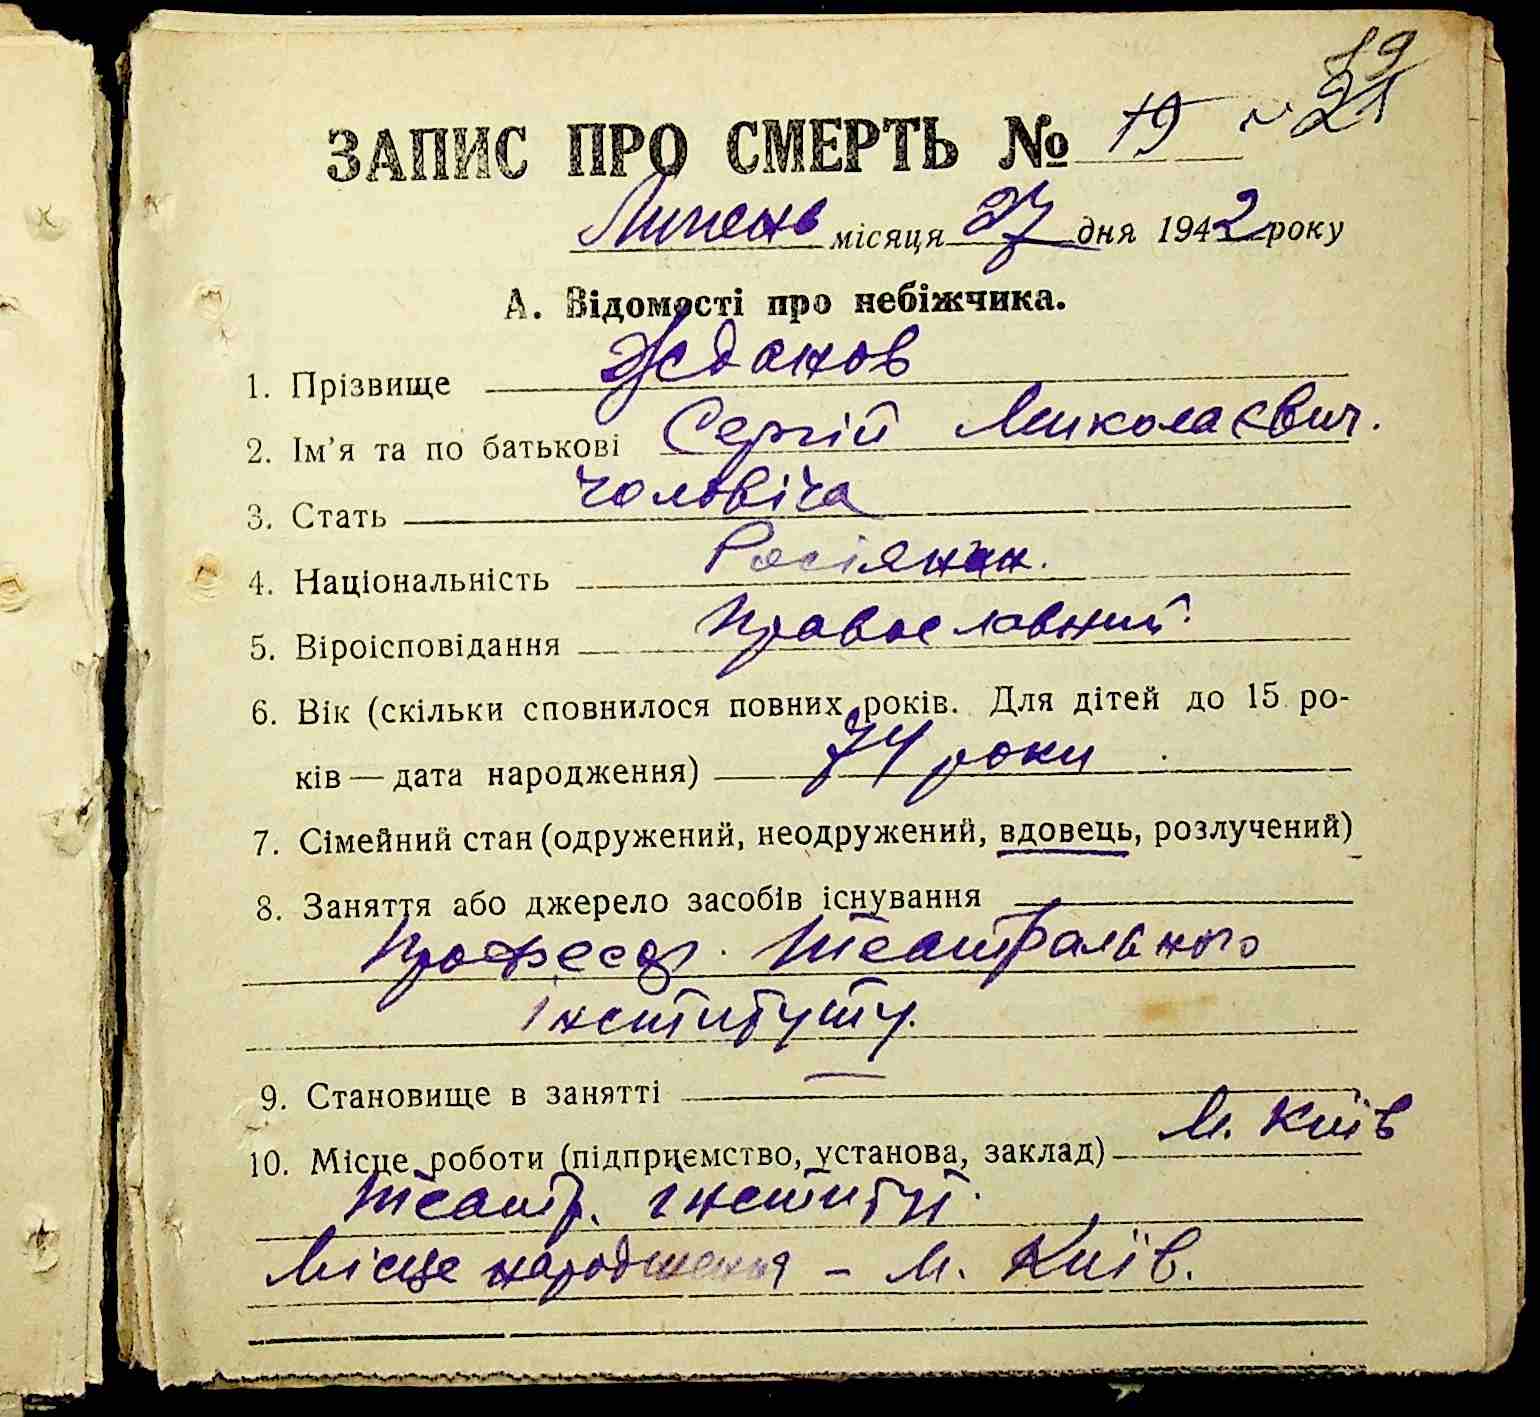 19
21
ЗАПИС ПРО СМЕРТЬ № 19
Липень місяця 27 дня 1942 року
А. Відомості про небіжчика.
1. Прізвище Жданов
2. Ім'я та по батькові Сергій Миколаєвич.
3. Стать чоловіча
4. Національність Росіянин.
5. Віроісповідання православний.
6. Вік (скільки сповнилося повних років. Для дітей до 15 ро-
ків — дата народження) 74 роки
7. Сімейний стан (одружений, неодружений, вдовець, розлучений)
8. Заняття або джерело засобів існування
Професор театрального
інституту.
9. Становище в занятті —
10. Місце роботи (підприємство, установа, заклад) м. Київ
театр. інститут.
Місце народження – м. Київ.